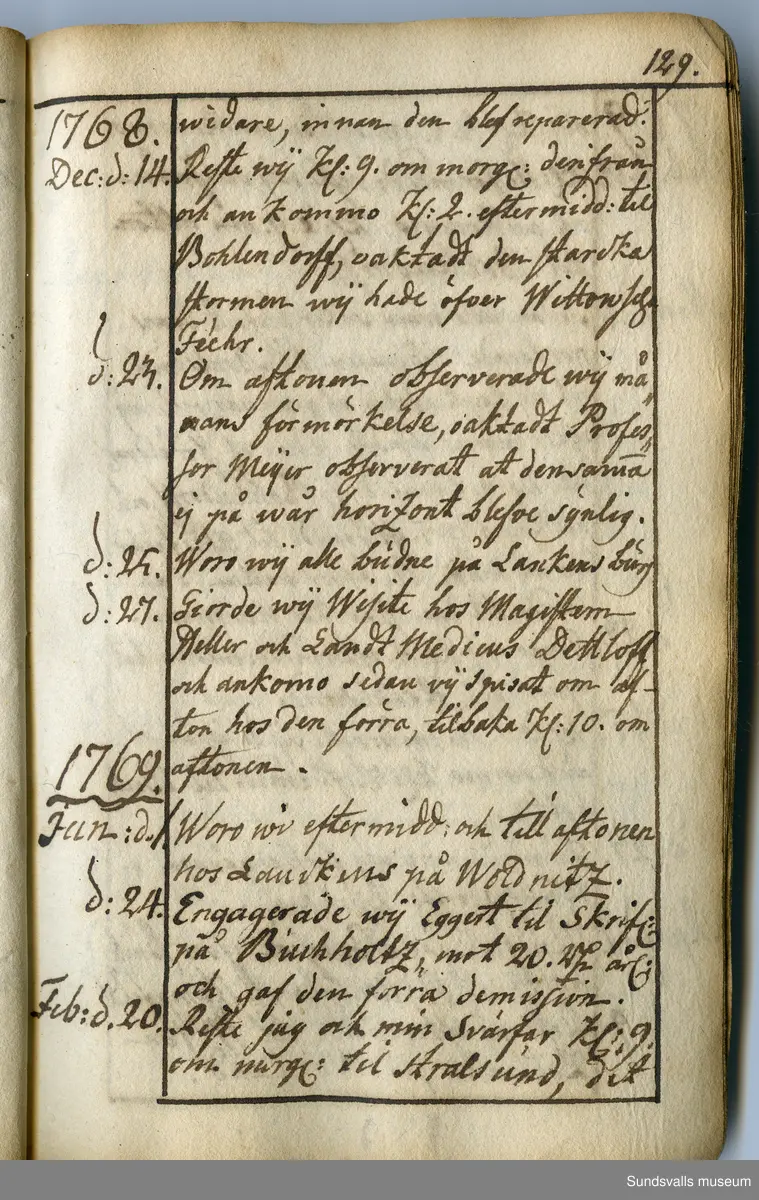 129.
1768. widare, innan den blef reparerad.
Dec: d: 14. Reste wÿ Kl: 9. om morg: derifrån
och ankommo Kl: 2. eftermidd: til
Bohlendorff, oaktadt den starcka
stormen wÿ hade öfver Wittowsch
Feehr.
d: 23. Om aftonen observerade wÿ må„
nans förmörkelse, oaktadt Profes„
sor Meÿer observerat at densama
ej på wår horizont blefve sÿnlig.
d: 25. Woro wÿ alle budne på Lanckensburg
d: 27. Giorde wÿ Wisite hos Magistern
Heller och Landt Medicus Dettloff
och ankomo sedan vÿ spisat om af-
ton hos den förra, tilbaka Kl: 10. om
1769. aftonen.
Jan: d. 1 Woro wi eftermidd: och till aftonen
hos Lanckens på Woldnitz.
d: 24. Engagerade wÿ Eggert til Skrif:
på Buchholtz, mot 20. år:
och gaf den förra demission.
Feb: d. 20. Reste jag och min Svärfar Kl: 9.
om morg: til Stralsund, det
Sundsvalls museum